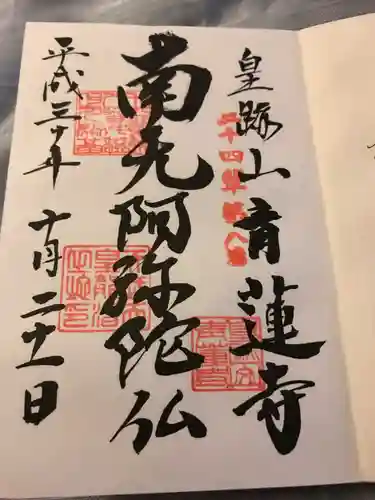 皇跡山青蓮寺
二十四輩第八番
南无阿弥陀仏
平成三十年 十月二十一日